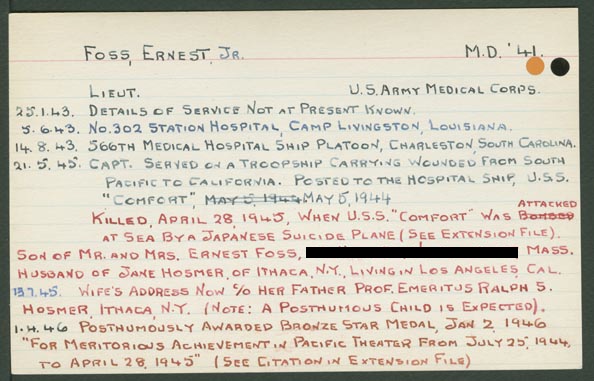 FOSS, ERNEST, JR. M.D. '41.
LIEUT. U.S. ARMY MEDICAL CORPS.
25.1.43. DETAILS OF SERVICE NOT AT PRESENT KNOWN.
5.6.43. NO. 302 STATION HOSPITAL, CAMP LIVINGSTON, LOUISIANA.
14.8.43. 566TH MEDICAL HOSPITAL SHIP PLATOON, CHARLESTON, SOUTH CAROLINA.
21.5.45. CAPT. SERVED ON A TROOPSHIP CARRYING WOUNDED FROM SOUTH
PACIFIC TO CALIFORNIA. POSTED TO THE HOSPITAL SHIP, U.S.S.
"COMFORT", MAY 5, 1944 MAY 5, 1944
ATTACKED
KILLED, APRIL 28, 1945, WHEN U.S.S. "COMFORT" WAS BOMBED
AT SEA BY A JAPANESE SUICIDE PLANE (SEE EXTENSION FILE).
SON OF MR. AND MRS. ERNEST FOSS, MASS.
HUSBAND OF JANE HOSMER, OF ITHACA, N.Y., LIVING IN LOS ANGELES, CAL.
13.7.45. WIFE'S ADDRESS NOW C/O HER FATHER PROF. EMERITUS RALPH S.
HOSMER, ITHACA, N.Y. (NOTE: A POSTHUMOUS CHILD IS EXPECTED).
1.4.46 POSTHUMOUSLY AWARDED BRONZE STAR MEDAL, JAN 2, 1946
"FOR MERITORIOUS ACHIEVEMENT IN PACIFIC THEATER FROM JULY 25, 1944,
TO APRIL 28, 1945" (SEE CITATION IN EXTENSION FILE)